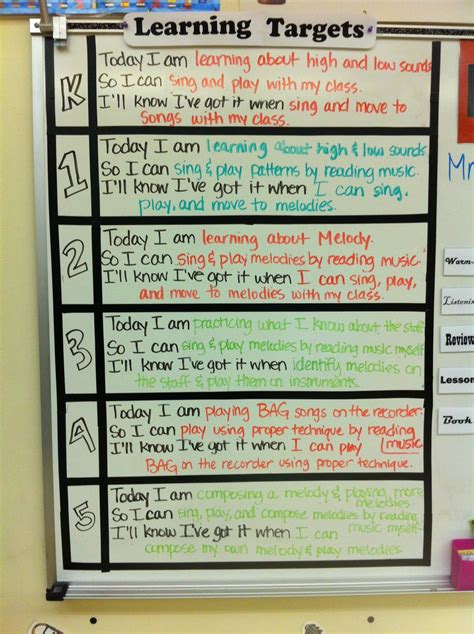 Learning Targets
K
Today I am learning about high and low sounds
So I can sing and play with my class.
I'll know I've got it when sing and move to
songs with my class.
1
Today I am learning about high & low sounds
So I can sing & play patterns by reading music.
I'll know I've got it when I can sing,
play, and move to melodies.
2
Today I am learning about Melody.
So I can sing & play melodies by reading music.
I'll know I've got it when I can sing, play,
and move to melodies with my class.
3
Today I am practicing what I know about the staff
So I can sing & play melodies by reading music myself
I'll know I've got it when identify melodies on
the staff & play them on instruments.
4
Today I am playing BAG songs on the recorder.
So I can play using proper technique by reading
music
I'll know I've got it when I can play
BAG on the recorder using proper technique.
5
Today I am composing a melody & playing more
melodies.
So I can sing, play, and compose melodies by reading
music myself
I'll know I've got it when I can
compose my own melody & play melodies.
Mr
Warm-
Listening
Review
Lesson
Book